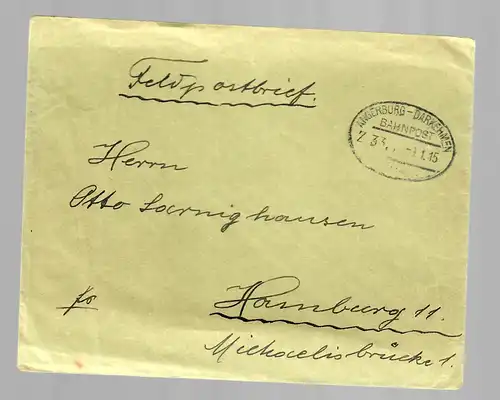 Feldpostbrief.
ANGERBURG-DARKEHMEN
BAHNPOST
Z 33 1.15
Herrn
Otto Saernighausen
fr
Hamburg 11.
Michaelisbrücke 1.